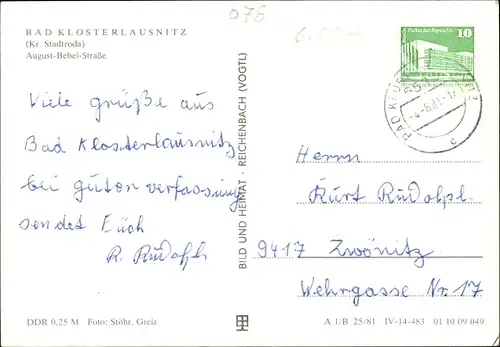 076
BAD KLOSTERLAUSNITZ
(Kr. Stadtroda)
August-Bebel-Straße
10
Viele grüße aus
Bad Klosterlausnitz
bei guten verfassung
sendet Euch
R. Rudolph
BILD UND HEIMAT · REICHENBACH (VOGTL)
Herrn
Kurt Rudolph.
9417 Zwönitz
Wehrgasse Nr. 17
DDR 0,25 M Foto: Stöhr, Greiz
A 1/B 25/81 IV-14-483 01 10 09 049